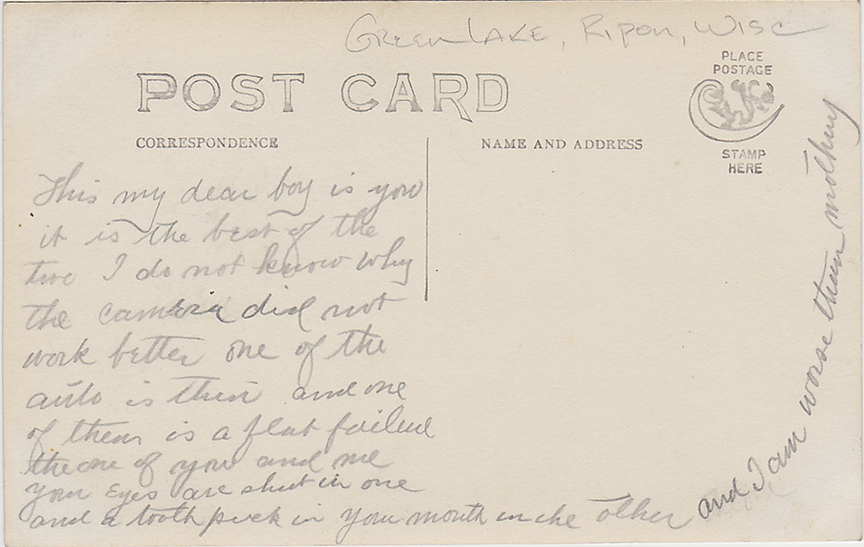 Green Lake, Ripon, Wisc
PLACE
POSTAGE
STAMP
HERE
POST CARD
CORRESPONDENCE
NAME AND ADDRESS
This my dear boy is you
it is the best of the
two I do not know why
the camera did not
work better one of the
auto is thin and one
of them is a flat failure
the one of you and me
your eyes are shut in one
and a tooth pick in your mouth in the other
and I am worse than nothing